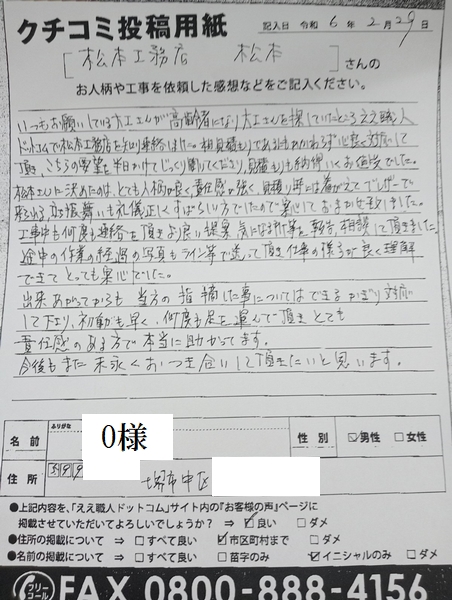 クチコミ投稿用紙
記入日 令和 6 年 2 月 29 日
[ 松本工務店 松本 ] さんの
お人柄や工事を依頼した感想などをご記入ください。
いつもお願いしている大工さんが高齢者になり大工さんを探していたところええ職人
ドットコムで松本工務店を知り連絡しました。相見積もりであるにもかかわらず心良く対応して
頂き、こちらの要望を半日かけてじっくり聞いてくださり、見積もりも納得いくお値段でした。
松本さんに決めたのは、とても人柄が良く責任感が強く、見積り時には着がえて
立ち振舞いも礼儀正しくすばらしい方でしたので安心しておまかせ致しました。
工事中も何度も連絡を頂きより良い提案、気になる事等を報告、相談して頂きました。
途中の作業の経過の写真もライン等で送って頂き仕事の様子が良く理解
できてとっても安心でした。
出来あがってからも 当方の指摘した事についてはできるかぎり対応
して下さり、初動も早く、何度も足を運んで頂きとても
責任感のある方で本当に助かってます。
今後もまた末永くおつき合いして頂きたいと思います。
ふりがな
名前 O様 性別 ☑男性 □女性
住所 599 堺市中区
●上記内容を、「ええ職人ドットコム」サイト内の『お客様の声』ページに
掲載させていただいてよろしいでしょうか? ⇒ ☑良い □ダメ
●住所の掲載について ⇒ □すべて良い ☑市区町村まで □ダメ
●名前の掲載について ⇒ □すべて良い □苗字のみ ☑イニシャルのみ □ダメ
フリーコール FAX 0800-888-4156